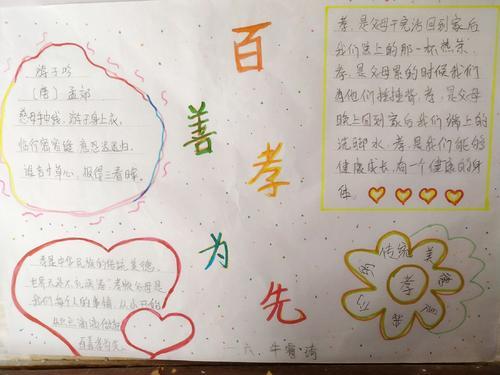 百
善
孝
为
先
游子吟
(唐) 孟郊
慈母手中线,游子身上衣,
临行密密缝 意恐迟迟归.
谁言寸草心,报得三春晖.
孝,是父母干完活回到家后
我们端上的那一杯热茶.
孝,是父母累的时候我们
为他们捶捶背,孝,是父母
晚上回到家后我们端上的
洗脚水,孝,是我们能够
健康成长,有一个健康的身
体.
孝是中华民族的传统美德,
我们每个人的事情,从小开始
百善孝为先.
传统
美
德
孝
六